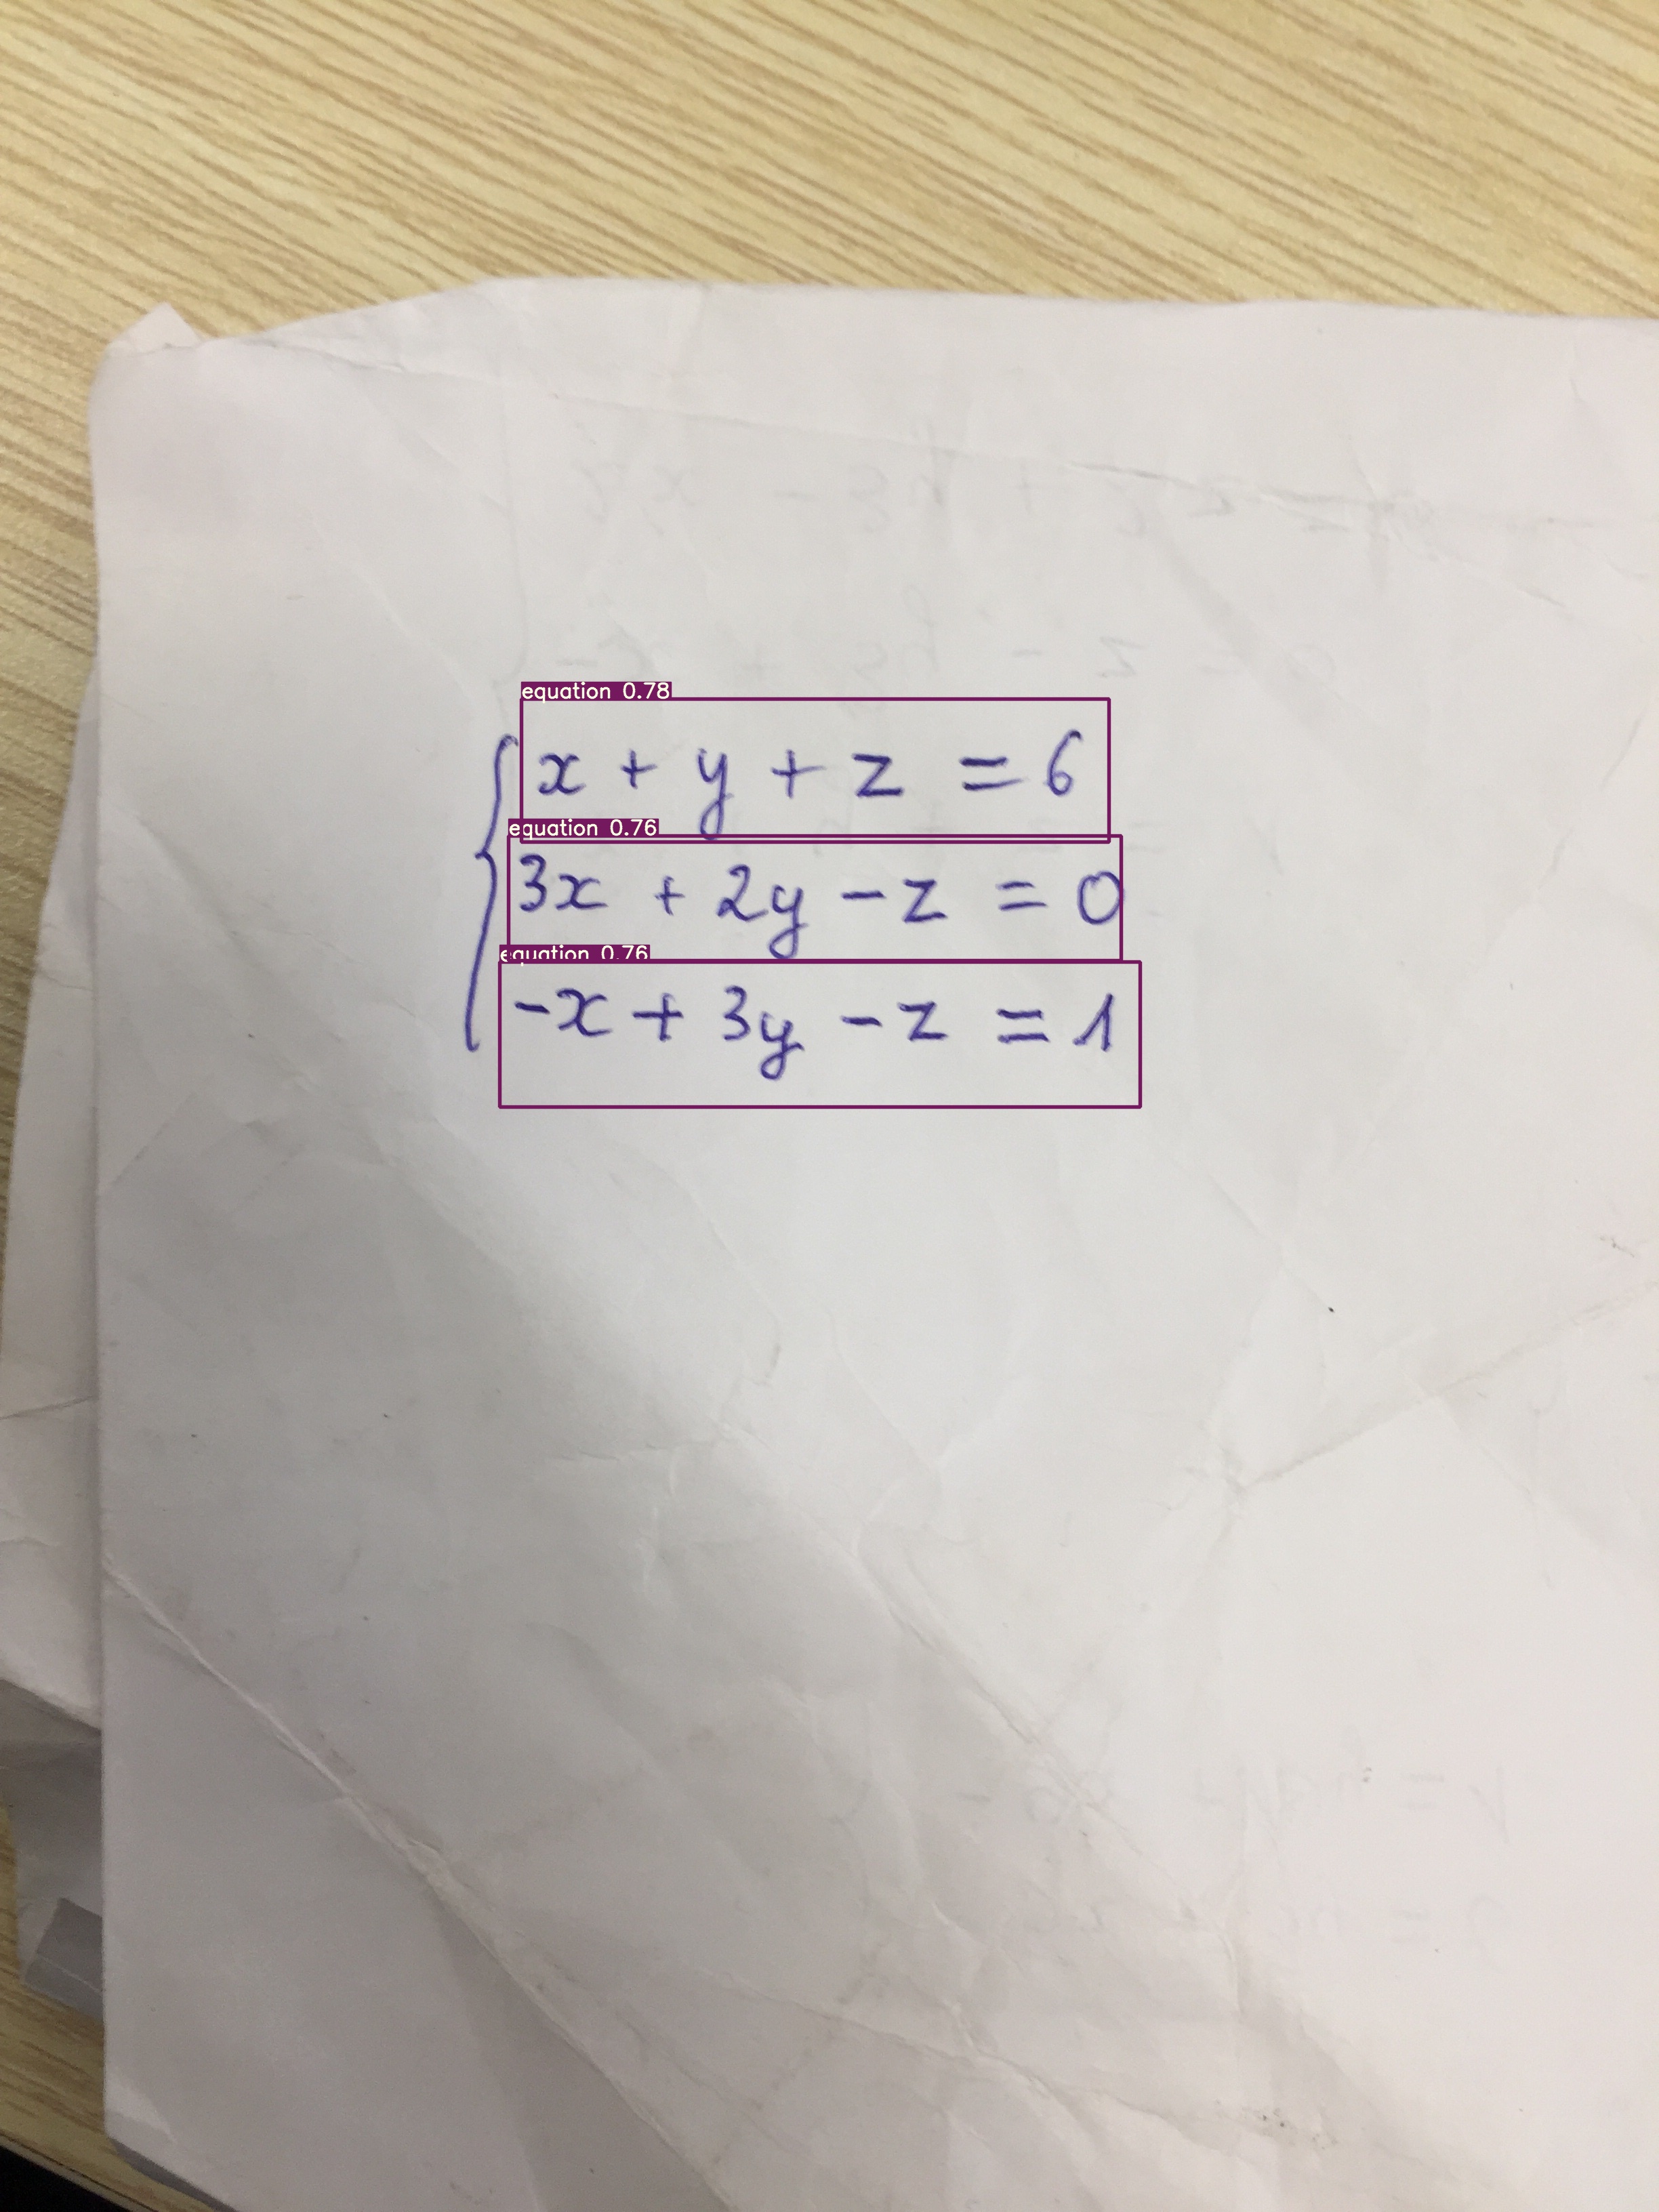 equation 0.78
x + y + z = 6
equation 0.76
3x + 2y - z = 0
equation 0.76
-x + 3y - z = 1